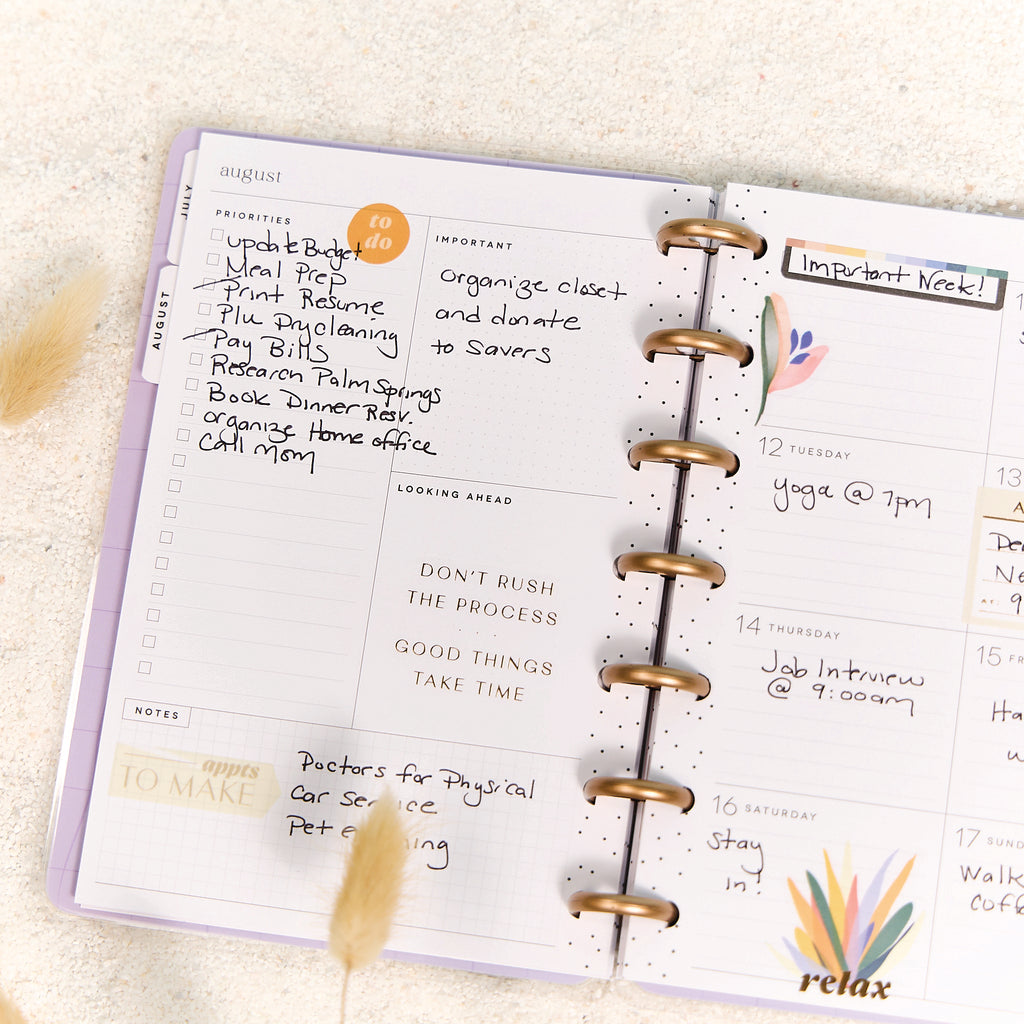 JULY
AUGUST
august
PRIORITIES
to
do
update Budget
Meal Prep
Print Resume
P/u Drycleaning
Pay Bills
Research Palm Springs
Book Dinner Resv.
organize Home office
Call Mom
IMPORTANT
organize closet
and donate
to Savers
LOOKING AHEAD
DON'T RUSH
THE PROCESS
GOOD THINGS
TAKE TIME
NOTES
appts
TO MAKE
Doctors for Physical
Car Service
Pet
Important Week!
12 TUESDAY
yoga @ 7pm
13
AT: 9
14 THURSDAY
Job Interview
@ 9:00am
15 FR
16 SATURDAY
Stay
in!
relax
17 SUND
Walk